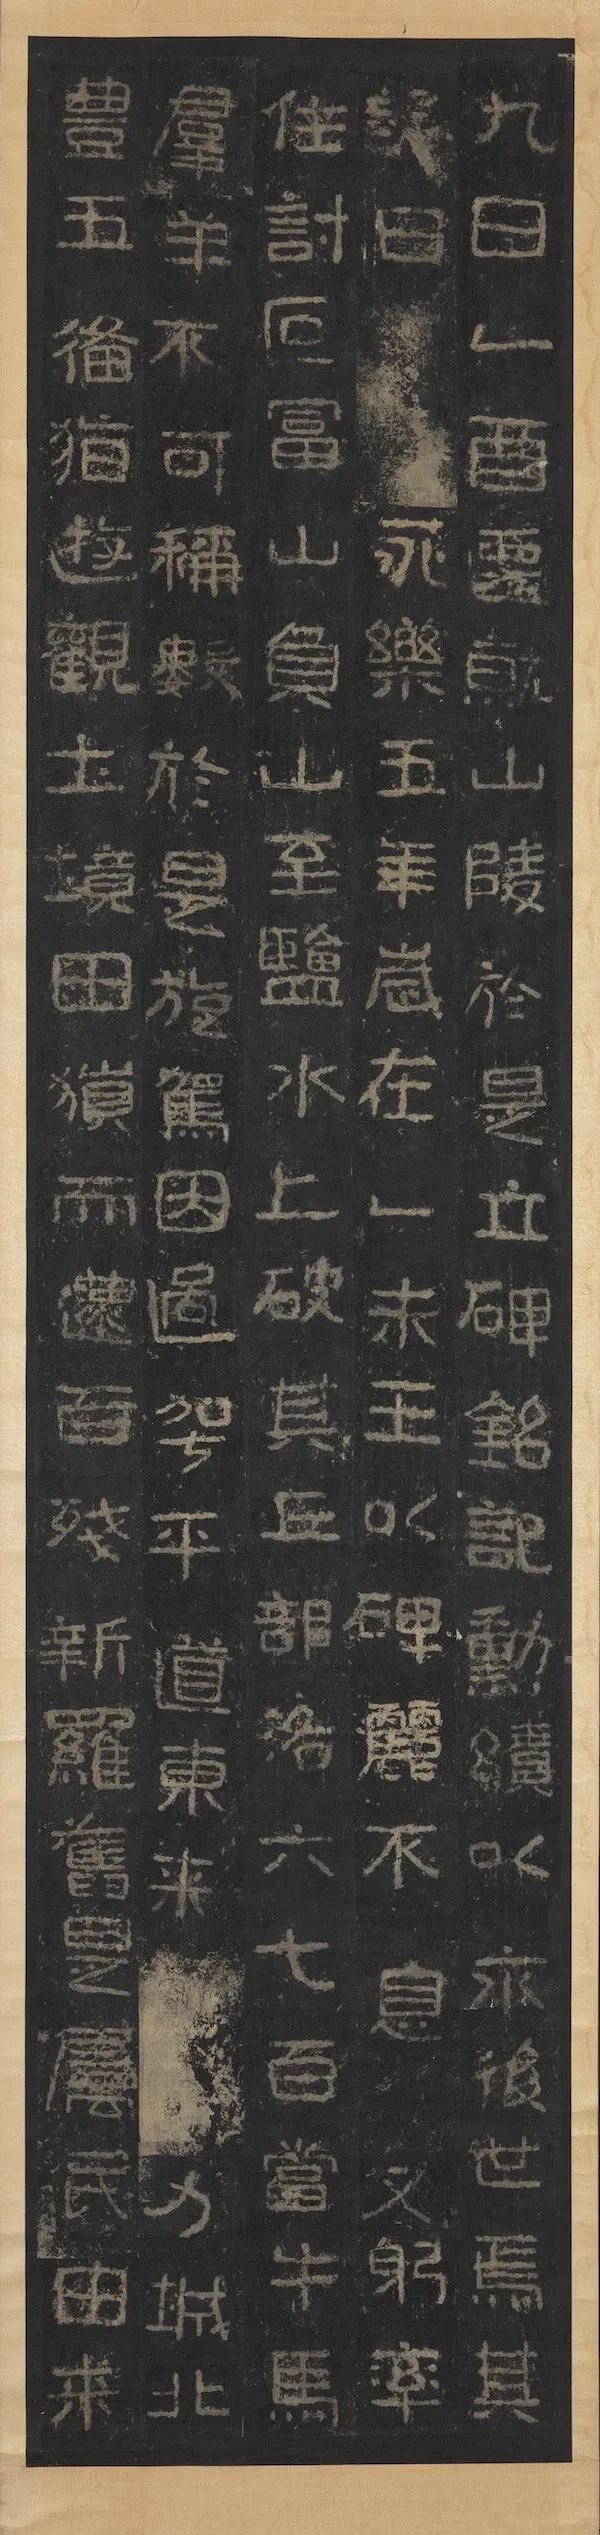 九日乙酉䙴就山陵於是立碑銘記勳績以永後世焉其
曰永樂五年歲在乙未王以碑麗不息又躬率
住討叵富山負山至鹽水上破其丘部洛六七百當牛馬
羣羊不可稱數於是旋駕因過平道東来力城北
豐五備猶遊觀土境田獵而還百殘新羅舊是屬民由来